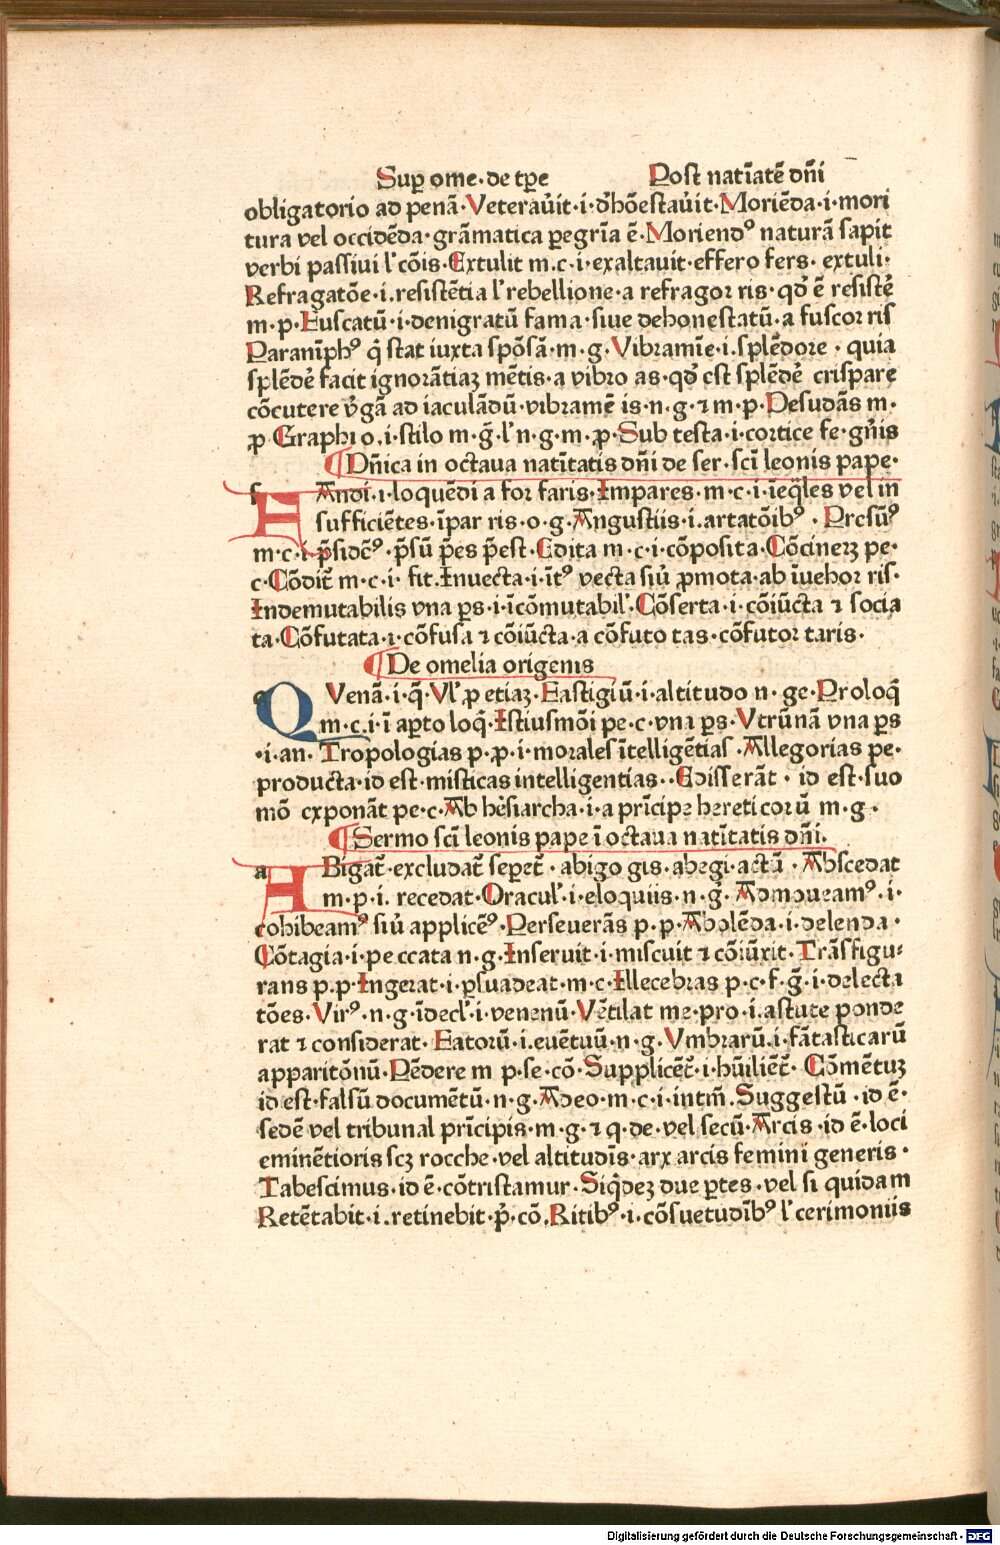 Suꝑ ome·de tꝑe Post natīatē dn̄i
obligatorio ad penā·Veterau̇it·i·d̓hōestau̇it·Moriēda·i·mori
tura vel occidēda·grāmatica ꝑegrīa ē·Moriendꝰ naturā sapit
verbi passiui l̓ cōis·Extulit m·c·i·exaltauit·effero fers·extuli·
Refragatōe·i·resistētia l̓ rebellione·a refragor ris·qd̓ ē resistē
m·p·Fuscatū·i·denigratū fama·siue dehonestatū·a fuscor ris
Paranīphꝰ q̇ stat iuxta spōsā·m·g·Vibramīe·i·splēdore·quia
splēdē facit ignorātiaꝫ mētis·a vibro as·qd̓ est splēdē crispare
cōcutere v̓gā ad iaculādū·vibramē is·n·g·⁊ m·p·Desudās m·
ꝓ Graphio·i·stilo m·ḡ·l̓ n·g·m·ꝓ·Sub testa·i·cortice fe·gn̄is
¶Dn̄ica in octaua natītatis dn̄i de ser·scī leonis pape·
f Andi·i·loquēdi a for faris·Impares·m·c·i·īeq̄les vel in
sufficiētes·īpar ris·o·g·Angustiis·i·artatōibꝰ·Presuꝰ
m·c·i·p̄sidēꝰ·p̄sū p̄es p̄est·Edita m·c·i·cōposita·Cōcinerꝫ pe·
c·Cōdit̄ m·c·i·fit·Inuecta·i·ītꝰ vecta siu̇ ꝓmota·ab īuehor ris·
Indemutabilis vna ꝑs·i·īcōmutabil̓·Cōserta·i·cōiūcta ⁊ socia
ta·Cōfutata·i·cōfusa ⁊ cōiūcta·a cōfuto tas·cōfutor taris·
¶De omelia origenis
q QVenā·i·q̄·Vl̓ ꝓ etiaꝫ·Fastigiū·i·altitudo n·ge·Proloq̄
m·c·i·ī aꝑto loq̄·Istiusmōi pe·c·vna ꝑs·Vtrūnā vna ꝑs
·i·an·Tropologias p·ꝓ·i·morales ītelligētias·Allegorias pe·
producta·id est·misticas intelligentias··Edisserāt·id est·suo
mō exponāt pe·c·Ab hēsiarcha·i·a prīcipe hereticorū m·g·
¶Sermo scī leonis pape ī octaua natītatis dn̄i·
a ABigat̄·excludat̄ seꝑet̄·abigo gis·abegi·actū·Abscedat
m·p·i·recedat·Oracul̓·i·eloquiis·n·ḡ·Admoueamꝰ·i·
cohibeamꝰ siu̇ applicēꝰ·Perseuerās p·p·Abolēda·i·delenda·
Cōtagia·i·peccata n·g·Inseruit·i·miscuit ⁊ cōiūxit·Trāsfigu⸗
rans p·p·Ingerat·i·ꝑsuadeat·m·c·Illecebras p·c·f·ḡ·i·delecta
tōes·Virꝰ·n·g·īdecl̓·i·venenū·Vētilat me·pro·i·astute ponde
rat ⁊ considerat·Fatorū·i·euētuū·n·g·Vmbrarū·i·fātasticarū
apparitōnū·Pēdere m p·se·cō·Supplicēt̄·i·hūiliēt̄·Cōmētuꝫ
id est·falsū documētū·n·g·Adeo·m·c·i·intm̄·Suggestū·id ē·
sedē vel tribunal prīcipis·m·g·⁊ q·de·vel secū·Arcis·id ē·loci
eminētioris scꝫ rocche·vel altitudīs·arx arcis femini generis·
Tabescimus·id ē·cōtristamur·Siq̇deꝫ due ꝑtes·vel si quidam
Retētabit·i·retinebit·p̓·cō·Ritibꝰ·i·cōsuetudībꝰ l̓ cerimoniis
Digitalisierung gefördert durch die Deutsche Forschungsgemeinschaft - DFG